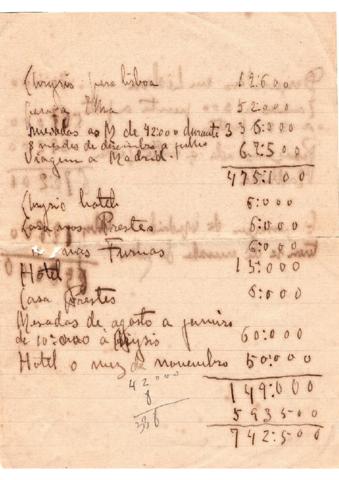 Chrysis para lisboa 12:600
Casaca Elna 52:000
mezadas ao M de 42:000 durante 336:000
8 mezes de dezembro a julho
Viagem a Madrid. 62:500
475:100
hotel 6:000
Casa Prestes 6:000
nas Furnas 6:000
Hotel 15:000
Casa Prestes 6:000
Mezadas de agosto a janeiro
de 10:000 à 60:000
Hotel o mez de novembro 50:000
42,000
8
336
149:000
593500
742:500